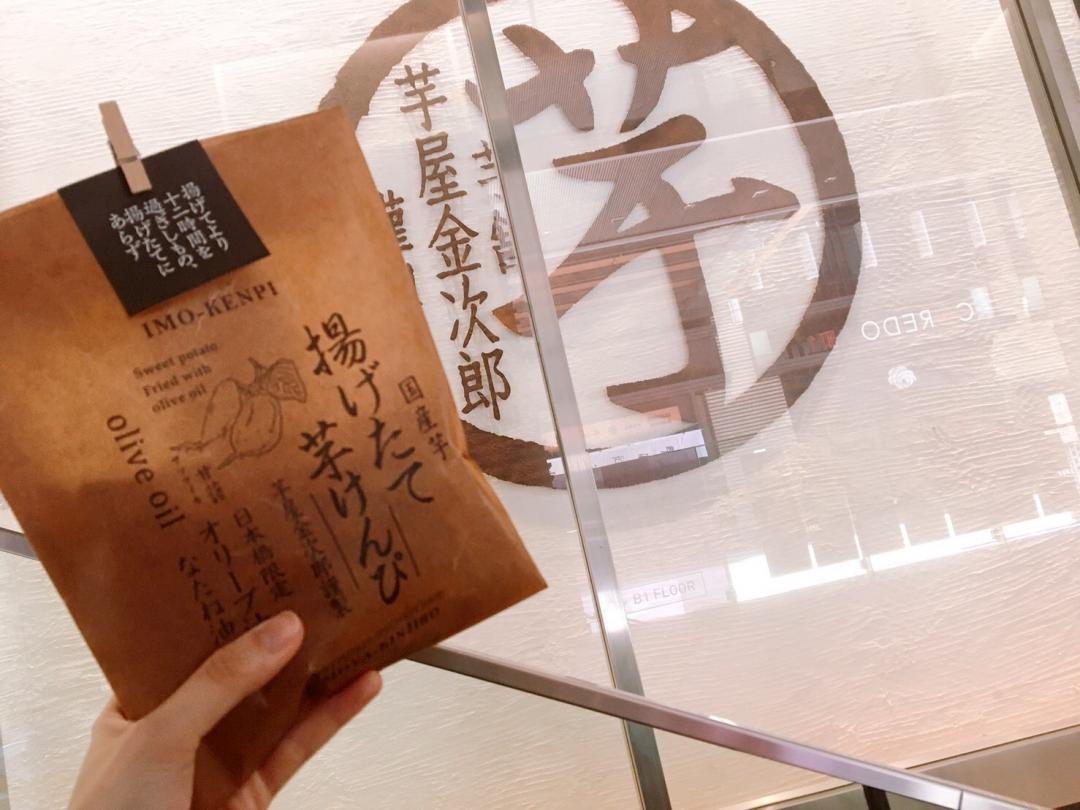 揚げてより
十二時間を
過ぎしもの、
揚げたてに
あらず
IMO-KENPI
Sweet potato
Fried with
olive oil
olive oil
国産芋
揚げたて
芋けんぴ
芋屋金次郎謹製
日本橋限定
オリーブ油
なたね油
芋屋金次郎
芋
B1 FLOOR